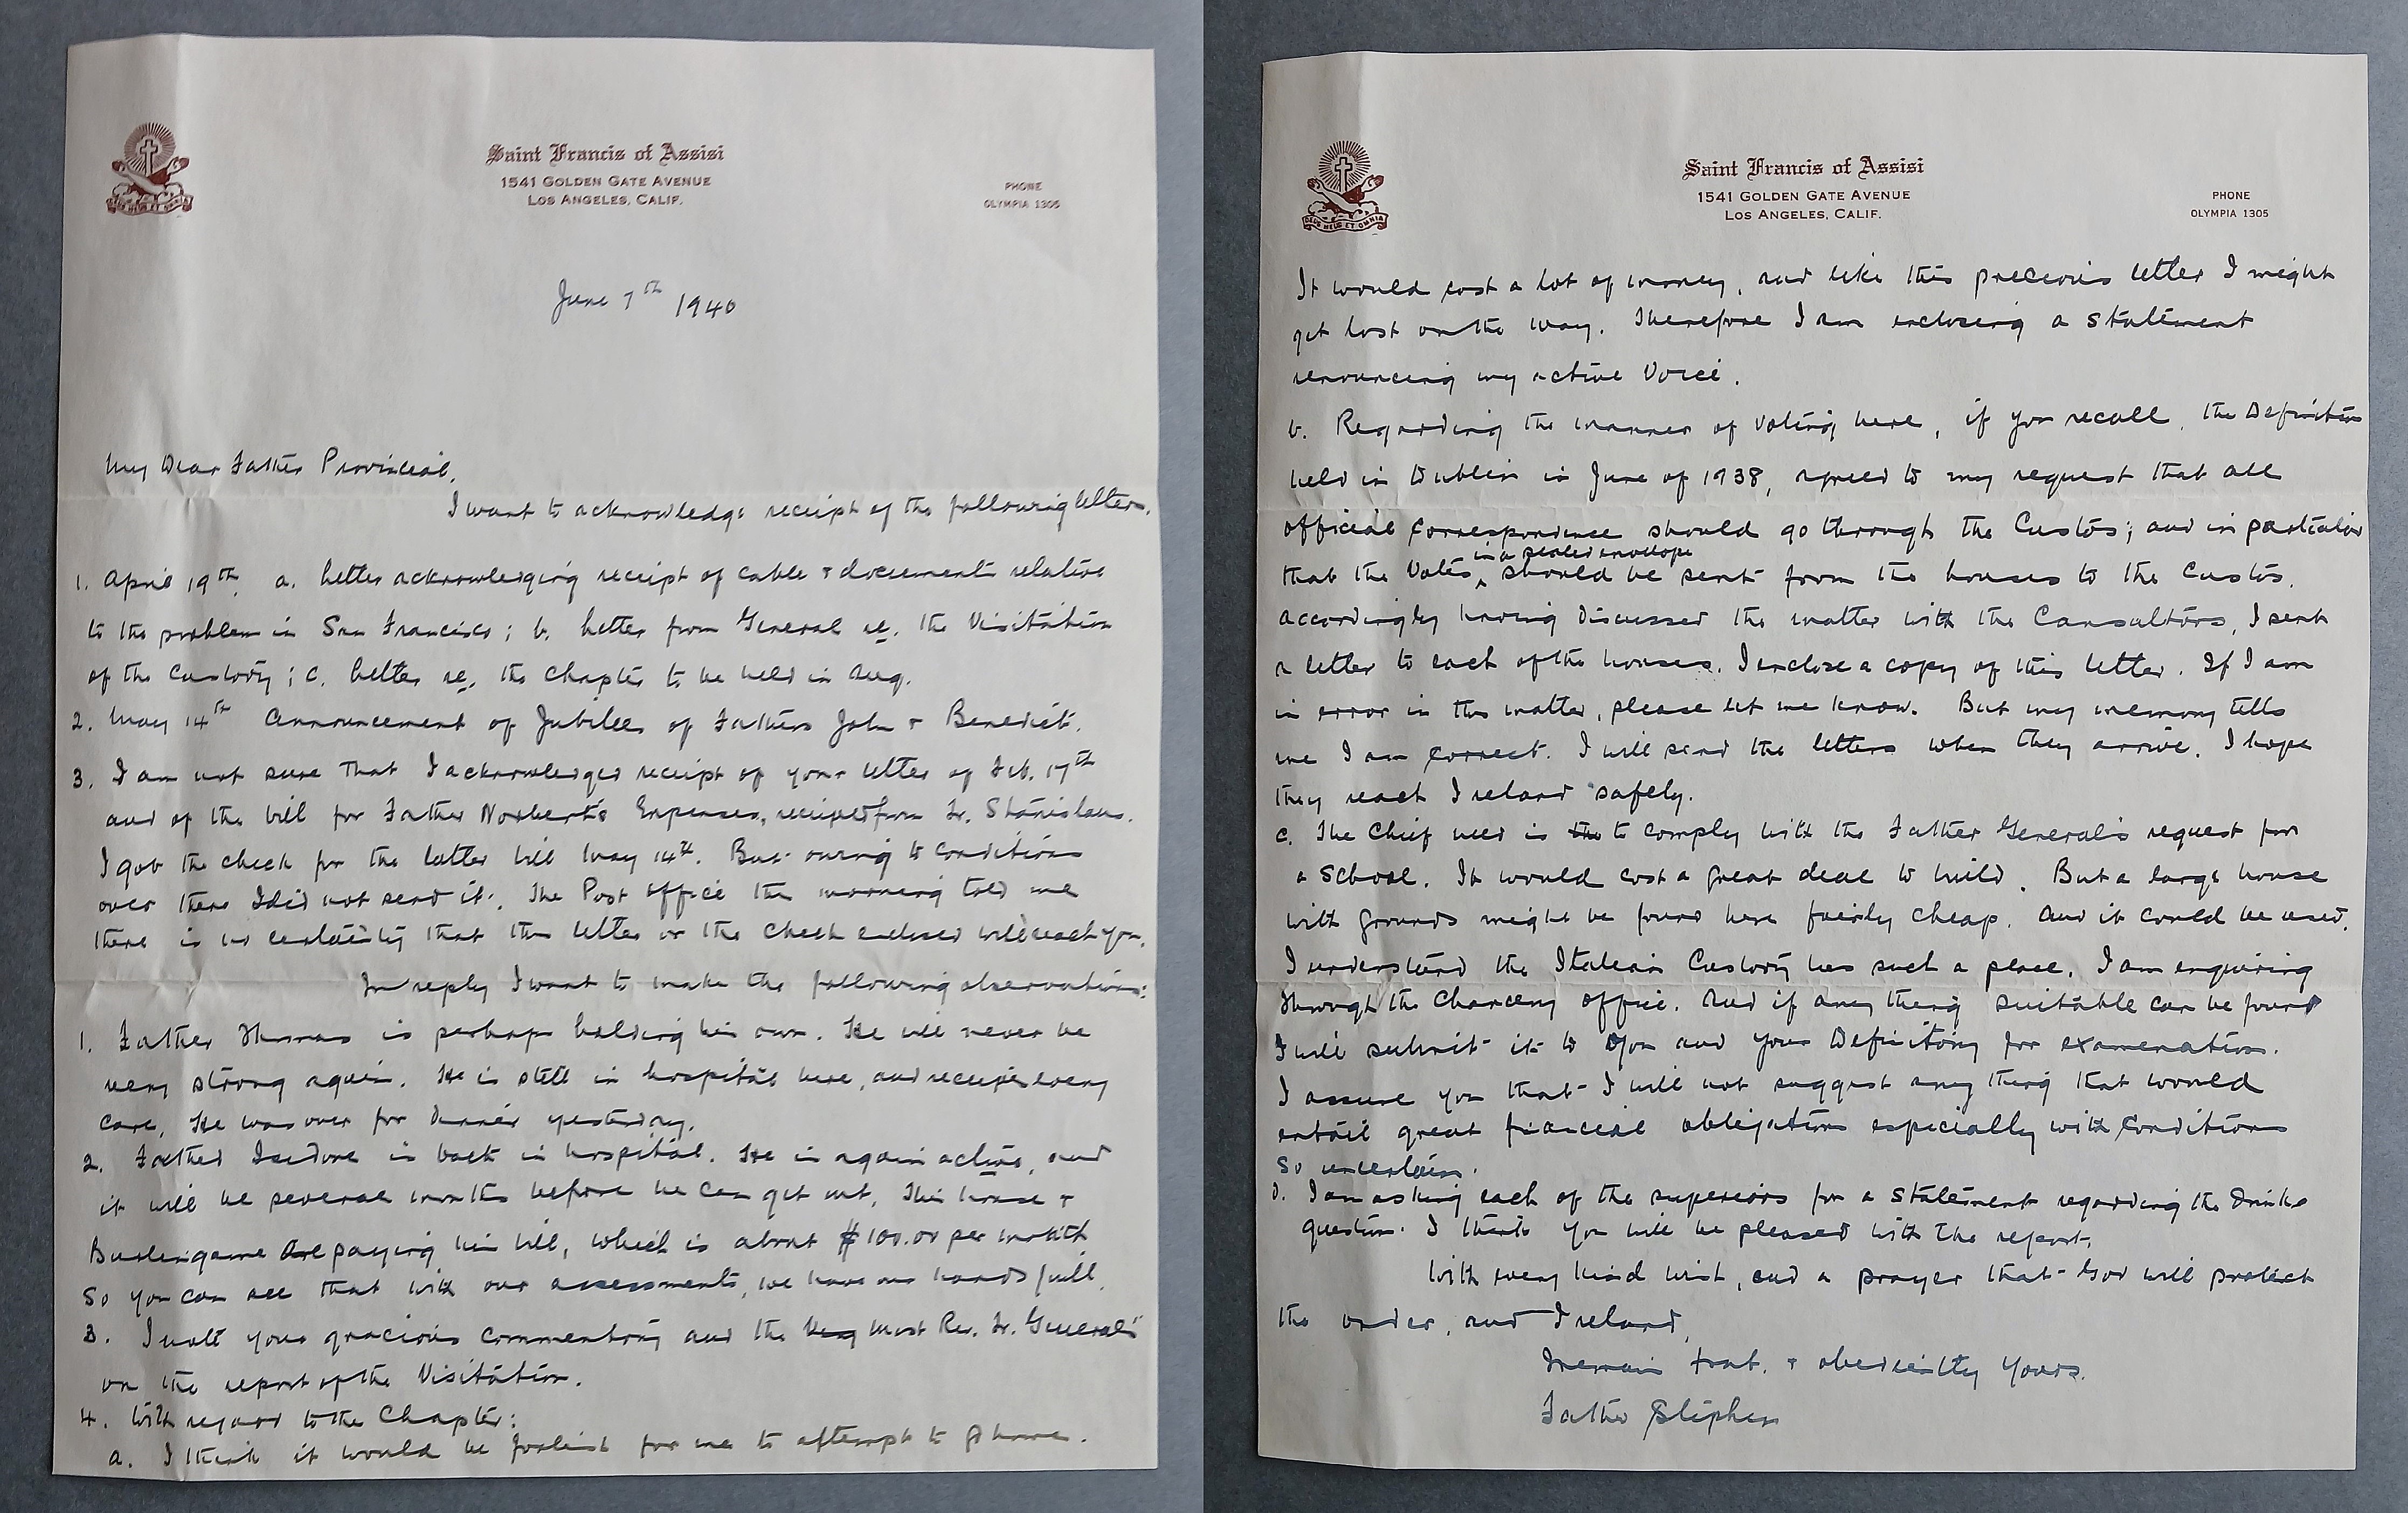 Saint Francis of Assisi
1541 GOLDEN GATE AVENUE
LOS ANGELES, CALIF.
PHONE
OLYMPIA 1305
June 7th 1940
My Dear Father Provincial,
I want to acknowledge receipt of the following letters.
1. April 19th. a. Letter acknowledging receipt of cable + documents relative
to the problem in San Francisco; b. Letter from General re. the Visitation
of the Custody; c. Letter re. the Chapter to be held in Aug.
2. May 14th Announcement of Jubilee of Fathers John + Benedict.
3. I am not sure that I acknowledged receipt of your letter of Feb. 17th
and of the bill for Father Norbert's Expenses, receipted from Fr. Stanislaus.
I got the check for the latter bill May 14th. But owing to conditions
over there I did not send it. The Post office this morning told me
there is no certainty that this letter or the check enclosed will reach you.
In reply I want to make the following observations:
1. Father Thomas is perhaps holding his own. He will never be
very strong again. He is still in hospital here, and receives every
care. He was over for dinner yesterday.
2. Father Isidore is back in hospital. He is again active, and
it will be several months before he can get out. This house +
Burlingame are paying his bill, which is about $100.00 per month
So you can see that with our assessments, we have our hands full.
3. I note your gracious commentary and the Very Most Rev. Fr. General's
on the report of the Visitation.
4. With regard to the Chapter:
a. I think it would be foolish for me to attempt to go home.
Saint Francis of Assisi
1541 GOLDEN GATE AVENUE
LOS ANGELES, CALIF.
PHONE
OLYMPIA 1305
DEUS MEUS ET OMNIA
It would cost a lot of money, and like this precious letter I might
get lost on the way. Therefore I am enclosing a statement
renouncing my active voice.
b. Regarding the manner of voting here, if you recall, the Definition
held in Dublin in June of 1938, agreed to my request that all
official correspondence should go through the Custos; and in particular
in a sealed envelope
that the Votes should be sent from the houses to the Custos.
Accordingly having discussed the matter with the Consultors, I sent
a letter to each of the houses. I enclose a copy of this letter. If I am
in error in this matter, please let me know. But my memory tells
me I am correct. I will send the letters when they arrive. I hope
they reach Ireland safely.
c. The Chief need is the to comply with the Father General's request for
a School. It would cost a great deal to build. But a large house
with grounds might be found here fairly cheap. And it could be used.
I understand the Italian Custody has such a place. I am enquiring
through the Chancery office. And if any thing suitable can be found
I will submit it to you and your Definitory for examination.
I assure you that I will not suggest any thing that would
entail great financial obligations especially with conditions
so uncertain.
d. I am asking each of the superiors for a statement regarding the Drink
question. I think you will be pleased with the report.
With every kind wish, and a prayer that God will protect
the order, and Ireland,
I remain frat. + obediently yours.
Father Stephen